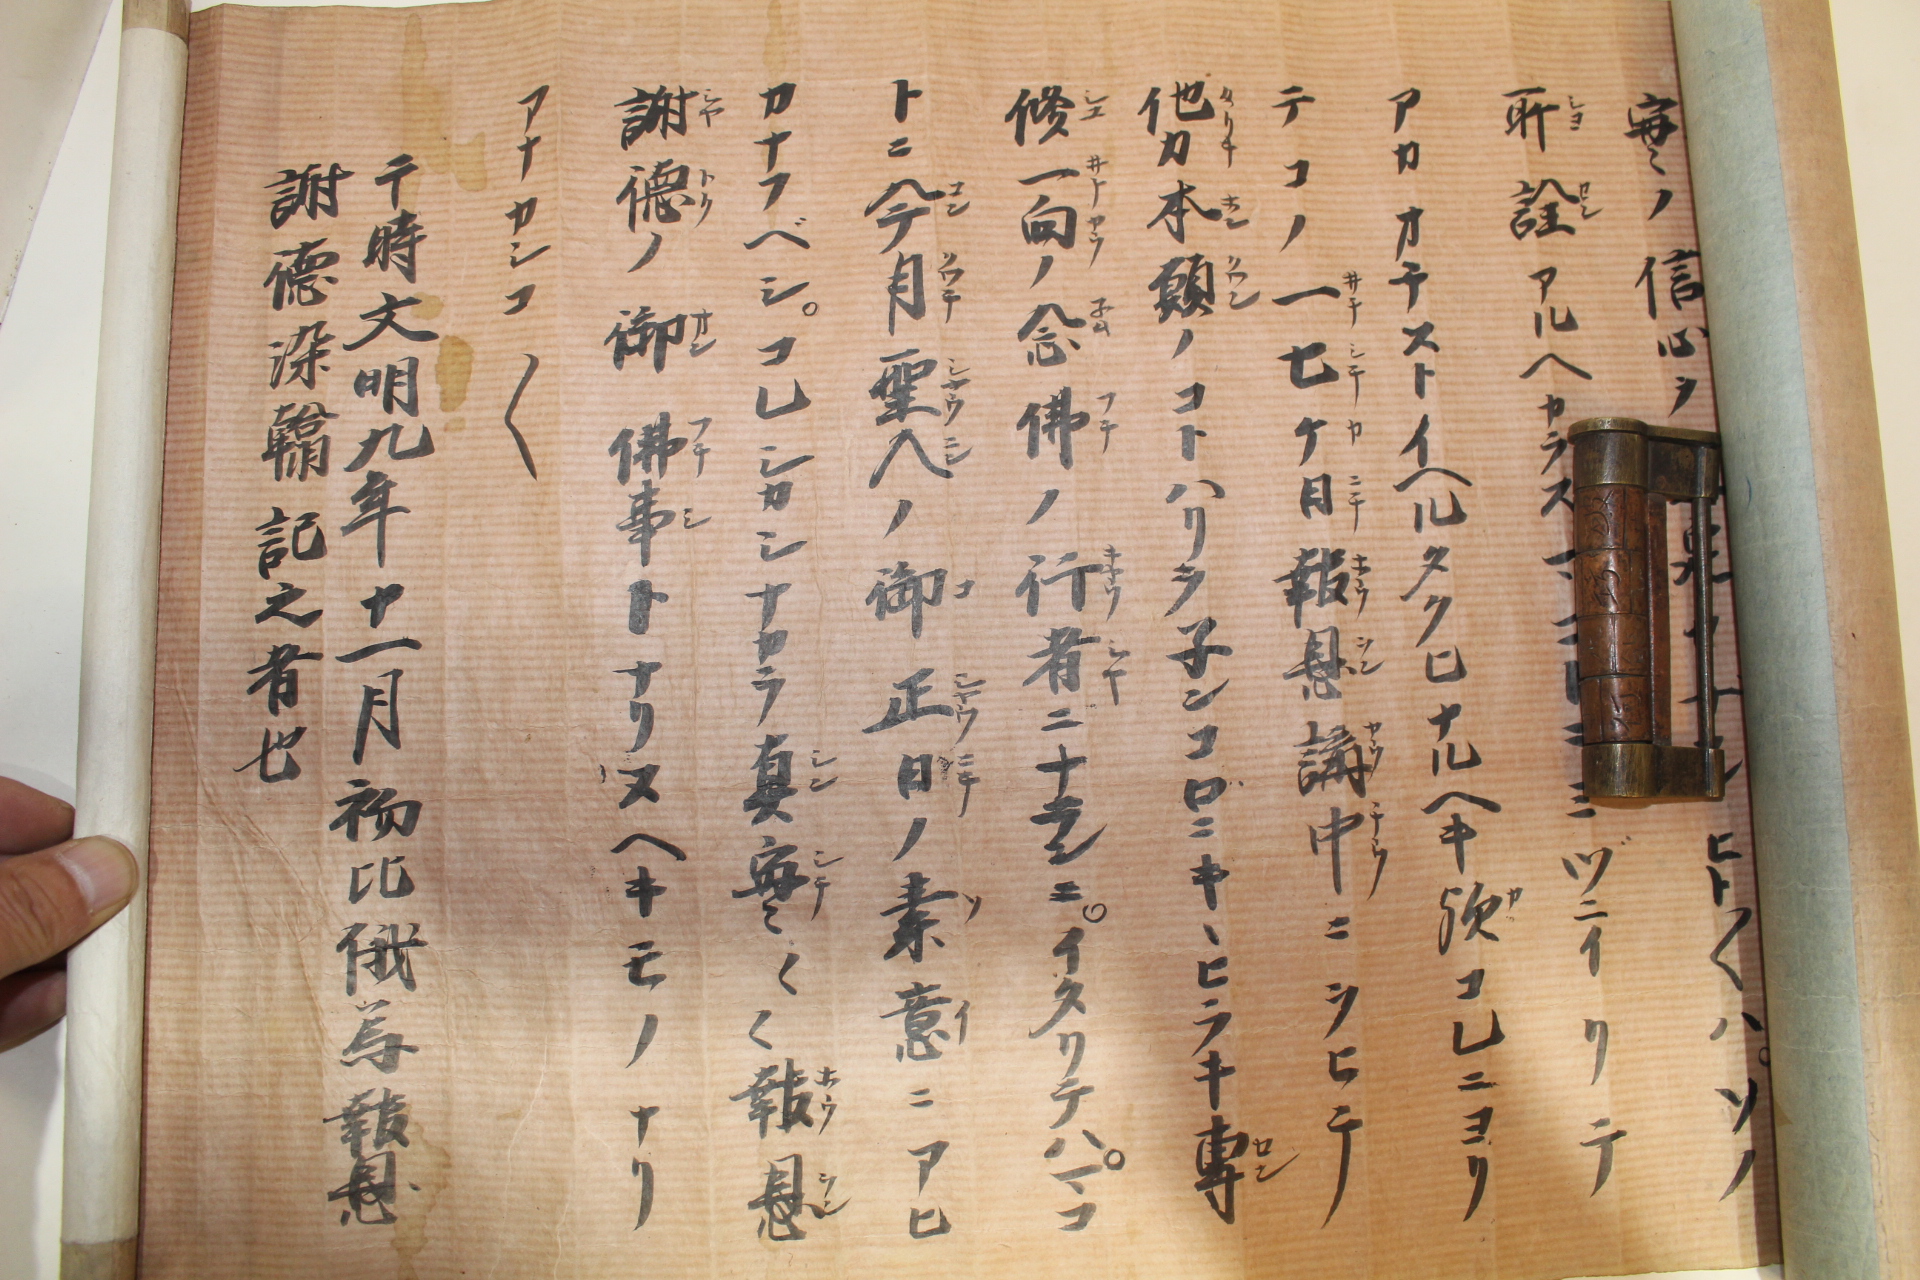 ヒト〱ハ。ソノ
寔ノ信心ヲ
所詮アルヘカラス ミヅニイリテ
アカオチストイヘルタクヒナルヘキ歟コレニヨリ
テコノ一七ケ日報恩講中ニヲヒテ
他力本願ノコトハリヲ子ンコロニキヽヒラキ専
修一向ノ念佛ノ行者ニナランニ。イタリテハ。マコ
トニ今月聖人ノ御正日ノ素意ニアヒ
カナフベシ。コレシカシナカラ真寔〱〱報恩
謝德ノ御佛事トナリヌヘキモノナリ
アナカシコ〱
于時文明九年十一月初比俄為報恩
謝德染翰記之者也